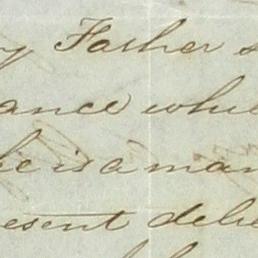 y Father s
ance whi
he is a man
esent deli